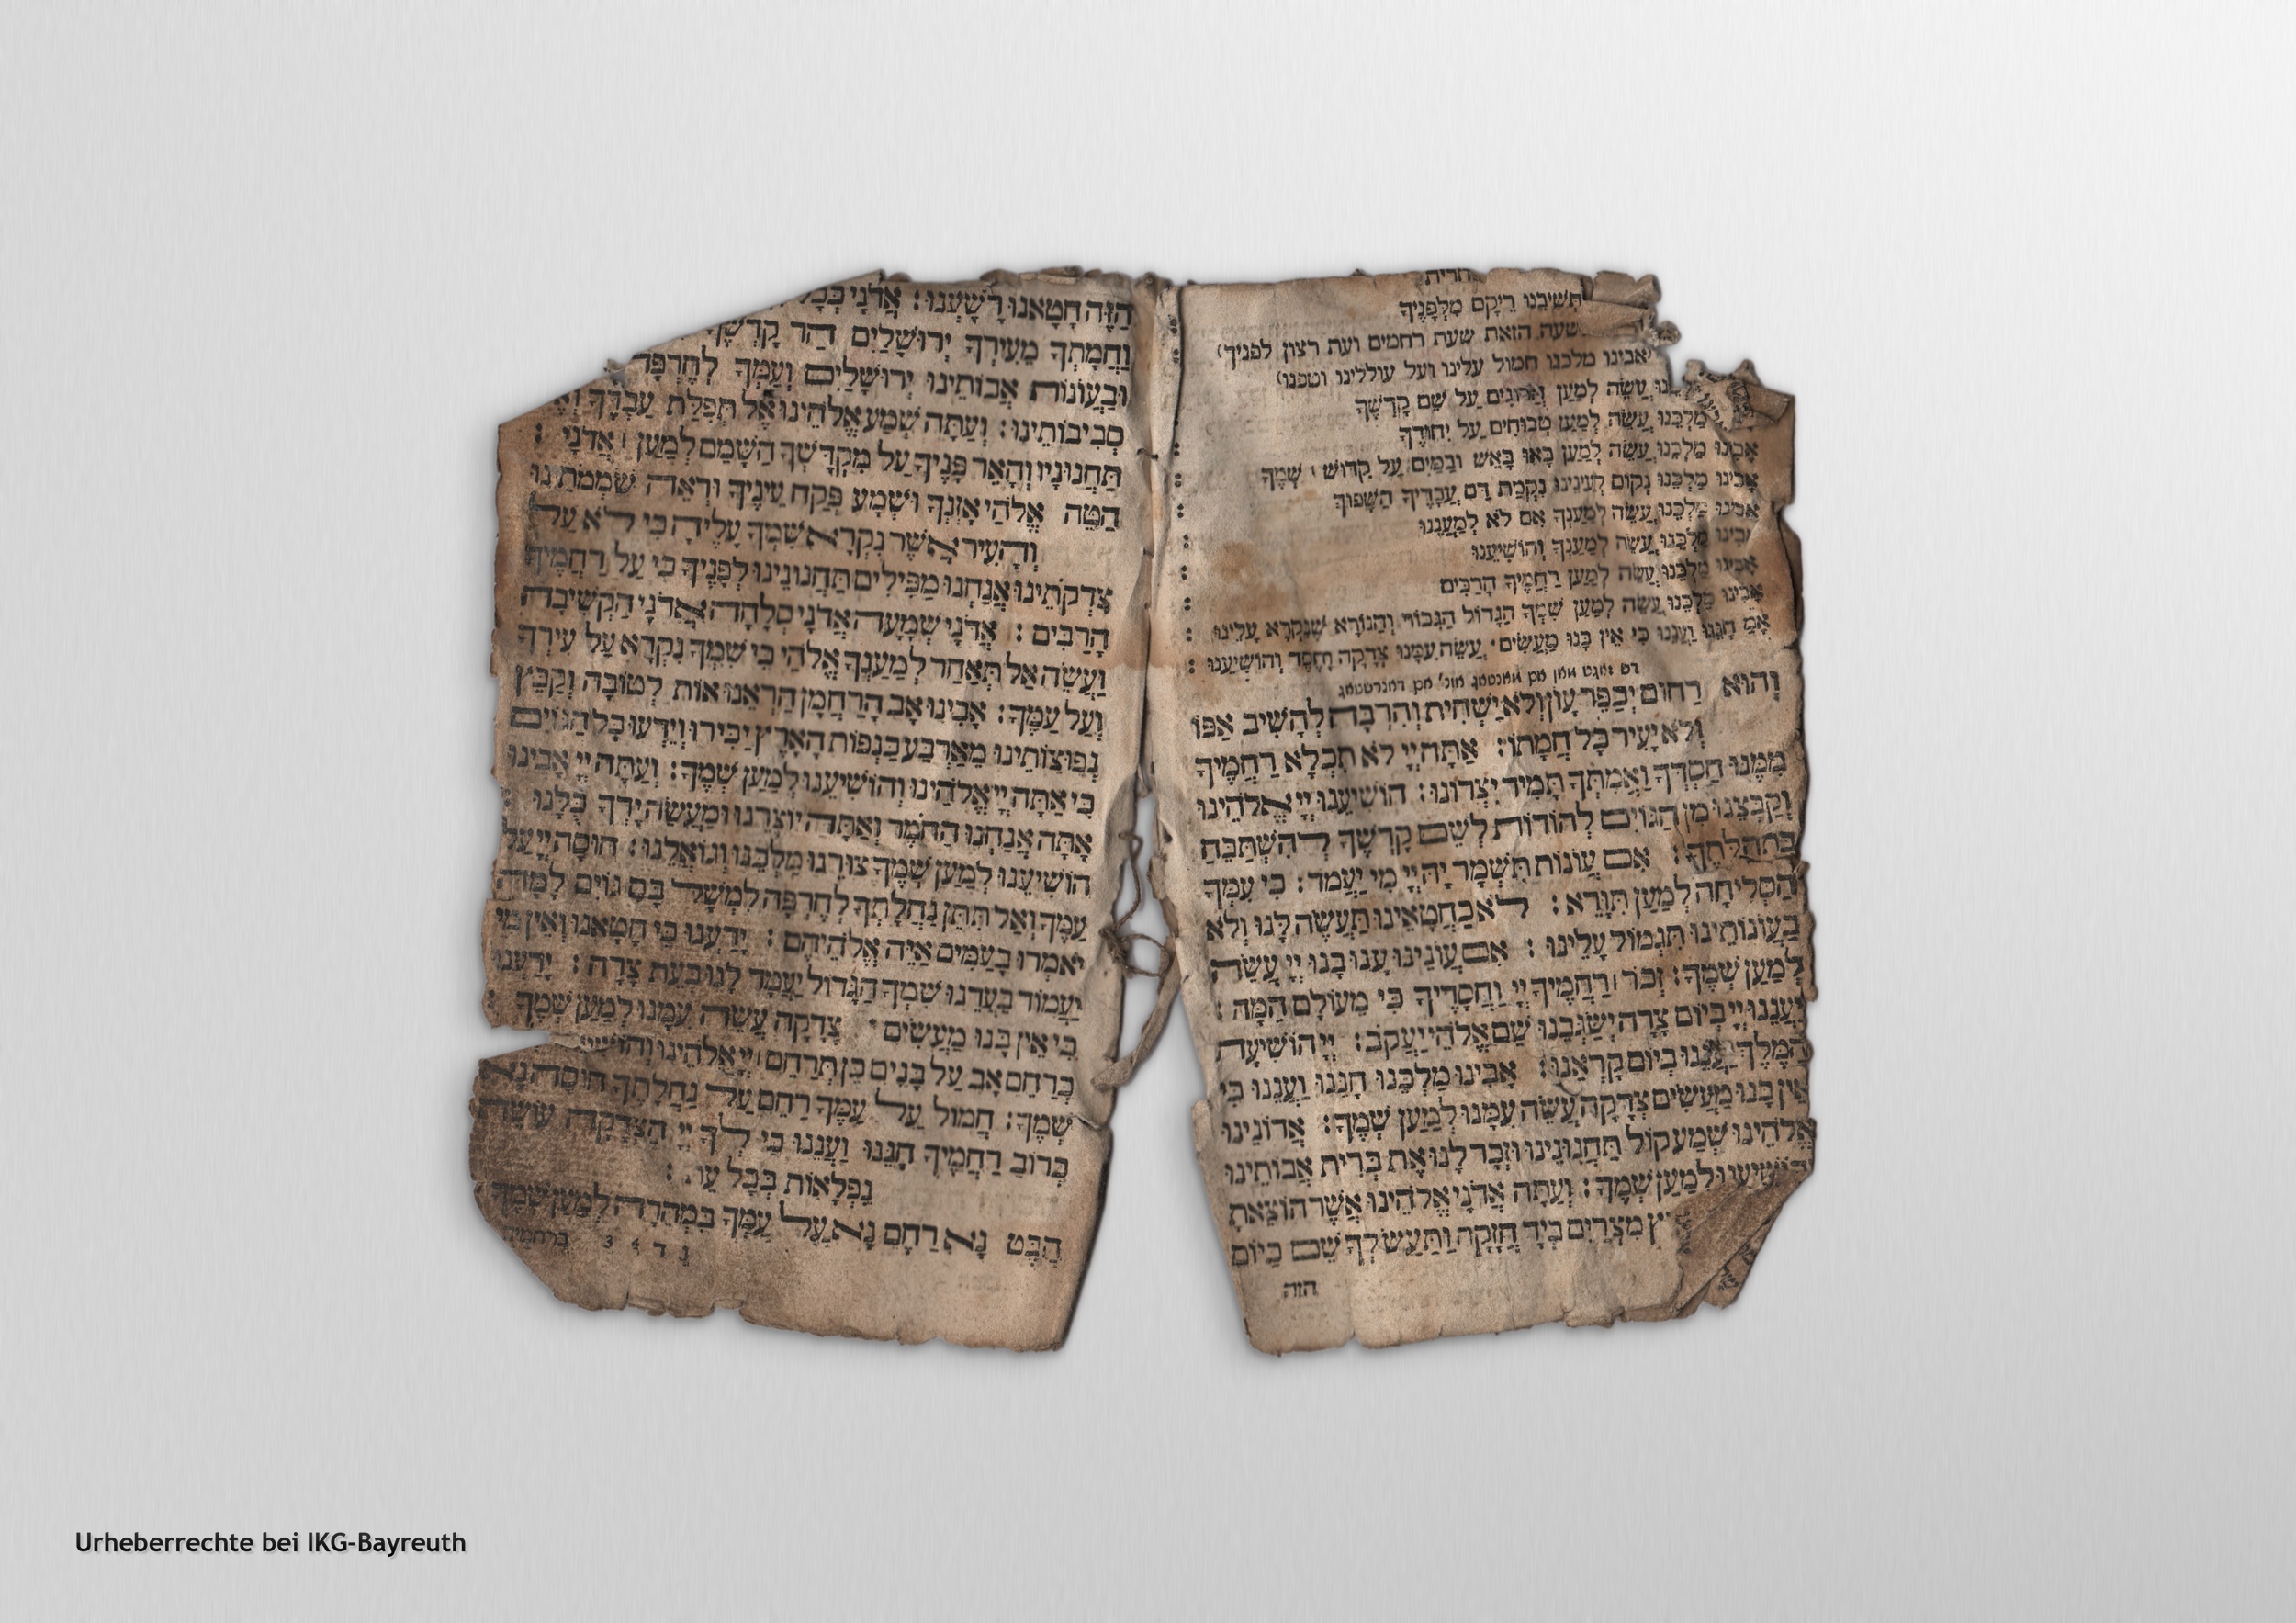 תְּשִׁיבֵנוּ רֵיקָם מִלְּפָנֶיךָ
הזאת שעת רחמים ועת רצון לפניך)
(אבינו מלכנו חמול עלינו ועל עוללינו וטפנו)
עֲשֵׂה לְמַעַן הֲרוּגִים עַל שֵׁם קָדְשֶׁךָ
מַלְכֵּנוּ עֲשֵׂה לְמַעַן טְבוּחִים עַל יִחוּדֶךָ
אָבִינוּ מַלְכֵּנוּ עֲשֵׂה לְמַעַן בָּאֵי בָאֵשׁ וּבַמַּיִם עַל קִדּוּשׁ שְׁמֶךָ
אָבִינוּ מַלְכֵּנוּ נְקוֹם לְעֵינֵינוּ נִקְמַת דַּם עֲבָדֶיךָ הַשָּׁפוּךְ
אָבִינוּ מַלְכֵּנוּ עֲשֵׂה לְמַעַנְךָ אִם לֹא לְמַעֲנֵנוּ
אָבִינוּ מַלְכֵּנוּ עֲשֵׂה לְמַעַנְךָ וְהוֹשִׁיעֵנוּ
אָבִינוּ מַלְכֵּנוּ עֲשֵׂה לְמַעַן רַחֲמֶיךָ הָרַבִּים
אָבִינוּ מַלְכֵּנוּ עֲשֵׂה לְמַעַן שִׁמְךָ הַגָּדוֹל הַגִּבּוֹר וְהַנּוֹרָא שֶׁנִּקְרָא עָלֵינוּ :
חָנֵּנוּ וַעֲנֵנוּ כִּי אֵין בָּנוּ מַעֲשִׂים· עֲשֵׂה עִמָּנוּ צְדָקָה וָחֶסֶד וְהוֹשִׁיעֵנוּ :
דס זאגט מען אם מאנטאג אונ' אם דאנרסטאג
וְהוּא רַחוּם יְכַפֵּר עָוֹן וְלֹא יַשְׁחִית וְהִרְבָּה לְהָשִׁיב אַפּוֹ
וְלֹא יָעִיר כָּל חֲמָתוֹ: אַתָּה יְיָ לֹא תִכְלָא רַחֲמֶיךָ
מִמֶּנּוּ חַסְדְּךָ וַאֲמִתְּךָ תָּמִיד יִצְּרוּנוּ: הוֹשִׁיעֵנוּ יְיָ אֱלֹהֵינוּ
וְקַבְּצֵנוּ מִן הַגּוֹיִם לְהוֹדוֹת לְשֵׁם קָדְשֶׁךָ לְהִשְׁתַּבֵּחַ
בִּתְהִלָּתֶךָ: אִם עֲוֹנוֹת תִּשְׁמָר יָהּ יְיָ מִי יַעֲמֹד: כִּי עִמְּךָ
הַסְּלִיחָה לְמַעַן תִּוָּרֵא: לֹא כַחֲטָאֵינוּ תַּעֲשֶׂה לָּנוּ וְלֹא
כַעֲוֹנוֹתֵינוּ תִּגְמוֹל עָלֵינוּ: אִם עֲוֹנֵינוּ עָנוּ בָנוּ יְיָ עֲשֵׂה
לְמַעַן שְׁמֶךָ: זְכֹר רַחֲמֶיךָ יְיָ וַחֲסָדֶיךָ כִּי מֵעוֹלָם הֵמָּה:
יַעֲנֵנוּ יְיָ בְּיוֹם צָרָה יְשַׂגְּבֵנוּ שֵׁם אֱלֹהֵי יַעֲקֹב: יְיָ הוֹשִׁיעָה
הַמֶּלֶךְ יַעֲנֵנוּ בְיוֹם קָרְאֵנוּ: אָבִינוּ מַלְכֵּנוּ חָנֵּנוּ וַעֲנֵנוּ כִּי
אֵין בָּנוּ מַעֲשִׂים צְדָקָה עֲשֵׂה עִמָּנוּ לְמַעַן שְׁמֶךָ: אֲדוֹנֵינוּ
אֱלֹהֵינוּ שְׁמַע קוֹל תַּחֲנוּנֵינוּ וּזְכָר לָנוּ אֶת בְּרִית אֲבוֹתֵינוּ
וְהוֹשִׁיעֵנוּ לְמַעַן שְׁמֶךָ: וְעַתָּה אֲדֹנָי אֱלֹהֵינוּ אֲשֶׁר הוֹצֵאתָ
מִצְרַיִם בְּיָד חֲזָקָה וַתַּעַשׂ לְךָ שֵׁם כַּיּוֹם
הזה
הַזֶּה חָטָאנוּ רָשָׁעְנוּ: אֲדֹנָי כְּכָל
וַחֲמָתְךָ מֵעִירְךָ יְרוּשָׁלַיִם הַר קָדְשֶׁךָ
וּבַעֲוֹנוֹת אֲבוֹתֵינוּ יְרוּשָׁלַיִם וְעַמְּךָ לְחֶרְפָּה
סְבִיבוֹתֵינוּ: וְעַתָּה שְׁמַע אֱלֹהֵינוּ אֶל תְּפִלַּת עַבְדְּךָ
תַּחֲנוּנָיו וְהָאֵר פָּנֶיךָ עַל מִקְדָּשְׁךָ הַשָּׁמֵם לְמַעַן אֲדֹנָי :
הַטֵּה אֱלֹהַי אָזְנְךָ וּשְׁמָע פְּקַח עֵינֶיךָ וּרְאֵה שֹׁמְמֹתֵינוּ
וְהָעִיר אֲשֶׁר נִקְרָא שִׁמְךָ עָלֶיהָ כִּי לֹא עַל
צִדְקֹתֵינוּ אֲנַחְנוּ מַפִּילִים תַּחֲנוּנֵינוּ לְפָנֶיךָ כִּי עַל רַחֲמֶיךָ
הָרַבִּים: אֲדֹנָי שְׁמָעָה אֲדֹנָי סְלָחָה אֲדֹנָי הַקְשִׁיבָה
וַעֲשֵׂה אַל תְּאַחַר לְמַעַנְךָ אֱלֹהַי כִּי שִׁמְךָ נִקְרָא עַל עִירְךָ
וְעַל עַמֶּךָ: אָבִינוּ אָב הָרַחֲמָן הַרְאֵנוּ אוֹת לְטוֹבָה וְקַבֵּץ
נְפוּצוֹתֵינוּ מֵאַרְבַּע כַּנְפוֹת הָאָרֶץ יַכִּירוּ וְיֵדְעוּ כָּל הַגּוֹיִם
כִּי אַתָּה יְיָ אֱלֹהֵינוּ וְהוֹשִׁיעֵנוּ לְמַעַן שְׁמֶךָ: וְעַתָּה יְיָ אָבִינוּ
אָתָּה אֲנַחְנוּ הַחֹמֶר וְאַתָּה יוֹצְרֵנוּ וּמַעֲשֵׂה יָדְךָ כֻּלָּנוּ :
הוֹשִׁיעֵנוּ לְמַעַן שְׁמֶךָ צוּרֵנוּ מַלְכֵּנוּ וְגוֹאֲלֵנוּ: חוּסָה יְיָ עַל
עַמֶּךָ וְאַל תִּתֵּן נַחֲלָתְךָ לְחֶרְפָּה לִמְשָׁל בָּם גּוֹיִם לָמָּה
יֹאמְרוּ בָעַמִּים אַיֵּה אֱלֹהֵיהֶם: יָדַעְנוּ כִּי חָטָאנוּ וְאֵין מִי
יַעֲמוֹד בַּעֲדֵנוּ שִׁמְךָ הַגָּדוֹל יַעֲמָד לָנוּ בְּעֵת צָרָה: יָדַעְנוּ
כִּי אֵין בָּנוּ מַעֲשִׂים· צְדָקָה עֲשֵׂה עִמָּנוּ לְמַעַן שְׁמֶךָ :
כְּרַחֵם אָב עַל בָּנִים כֵּן תְּרַחֵם יְיָ אֱלֹהֵינוּ
שְׁמֶךָ: חֲמוֹל עַל עַמֶּךָ רַחֵם עַל נַחֲלָתֶךָ חוּסָה נָּא
כְּרוֹב רַחֲמֶיךָ חָנֵּנוּ וַעֲנֵנוּ כִּי לְךָ יְיָ הַצְּדָקָה עוֹשֵׂה
נִפְלָאוֹת בְּכָל :
הַבֶּט נָא רַחֶם נָא עַל עַמְּךָ בִּמְהֵרָה לְמַעַן שְׁמֶךָ
ברחמיך
Urheberrechte bei IKG-Bayreuth